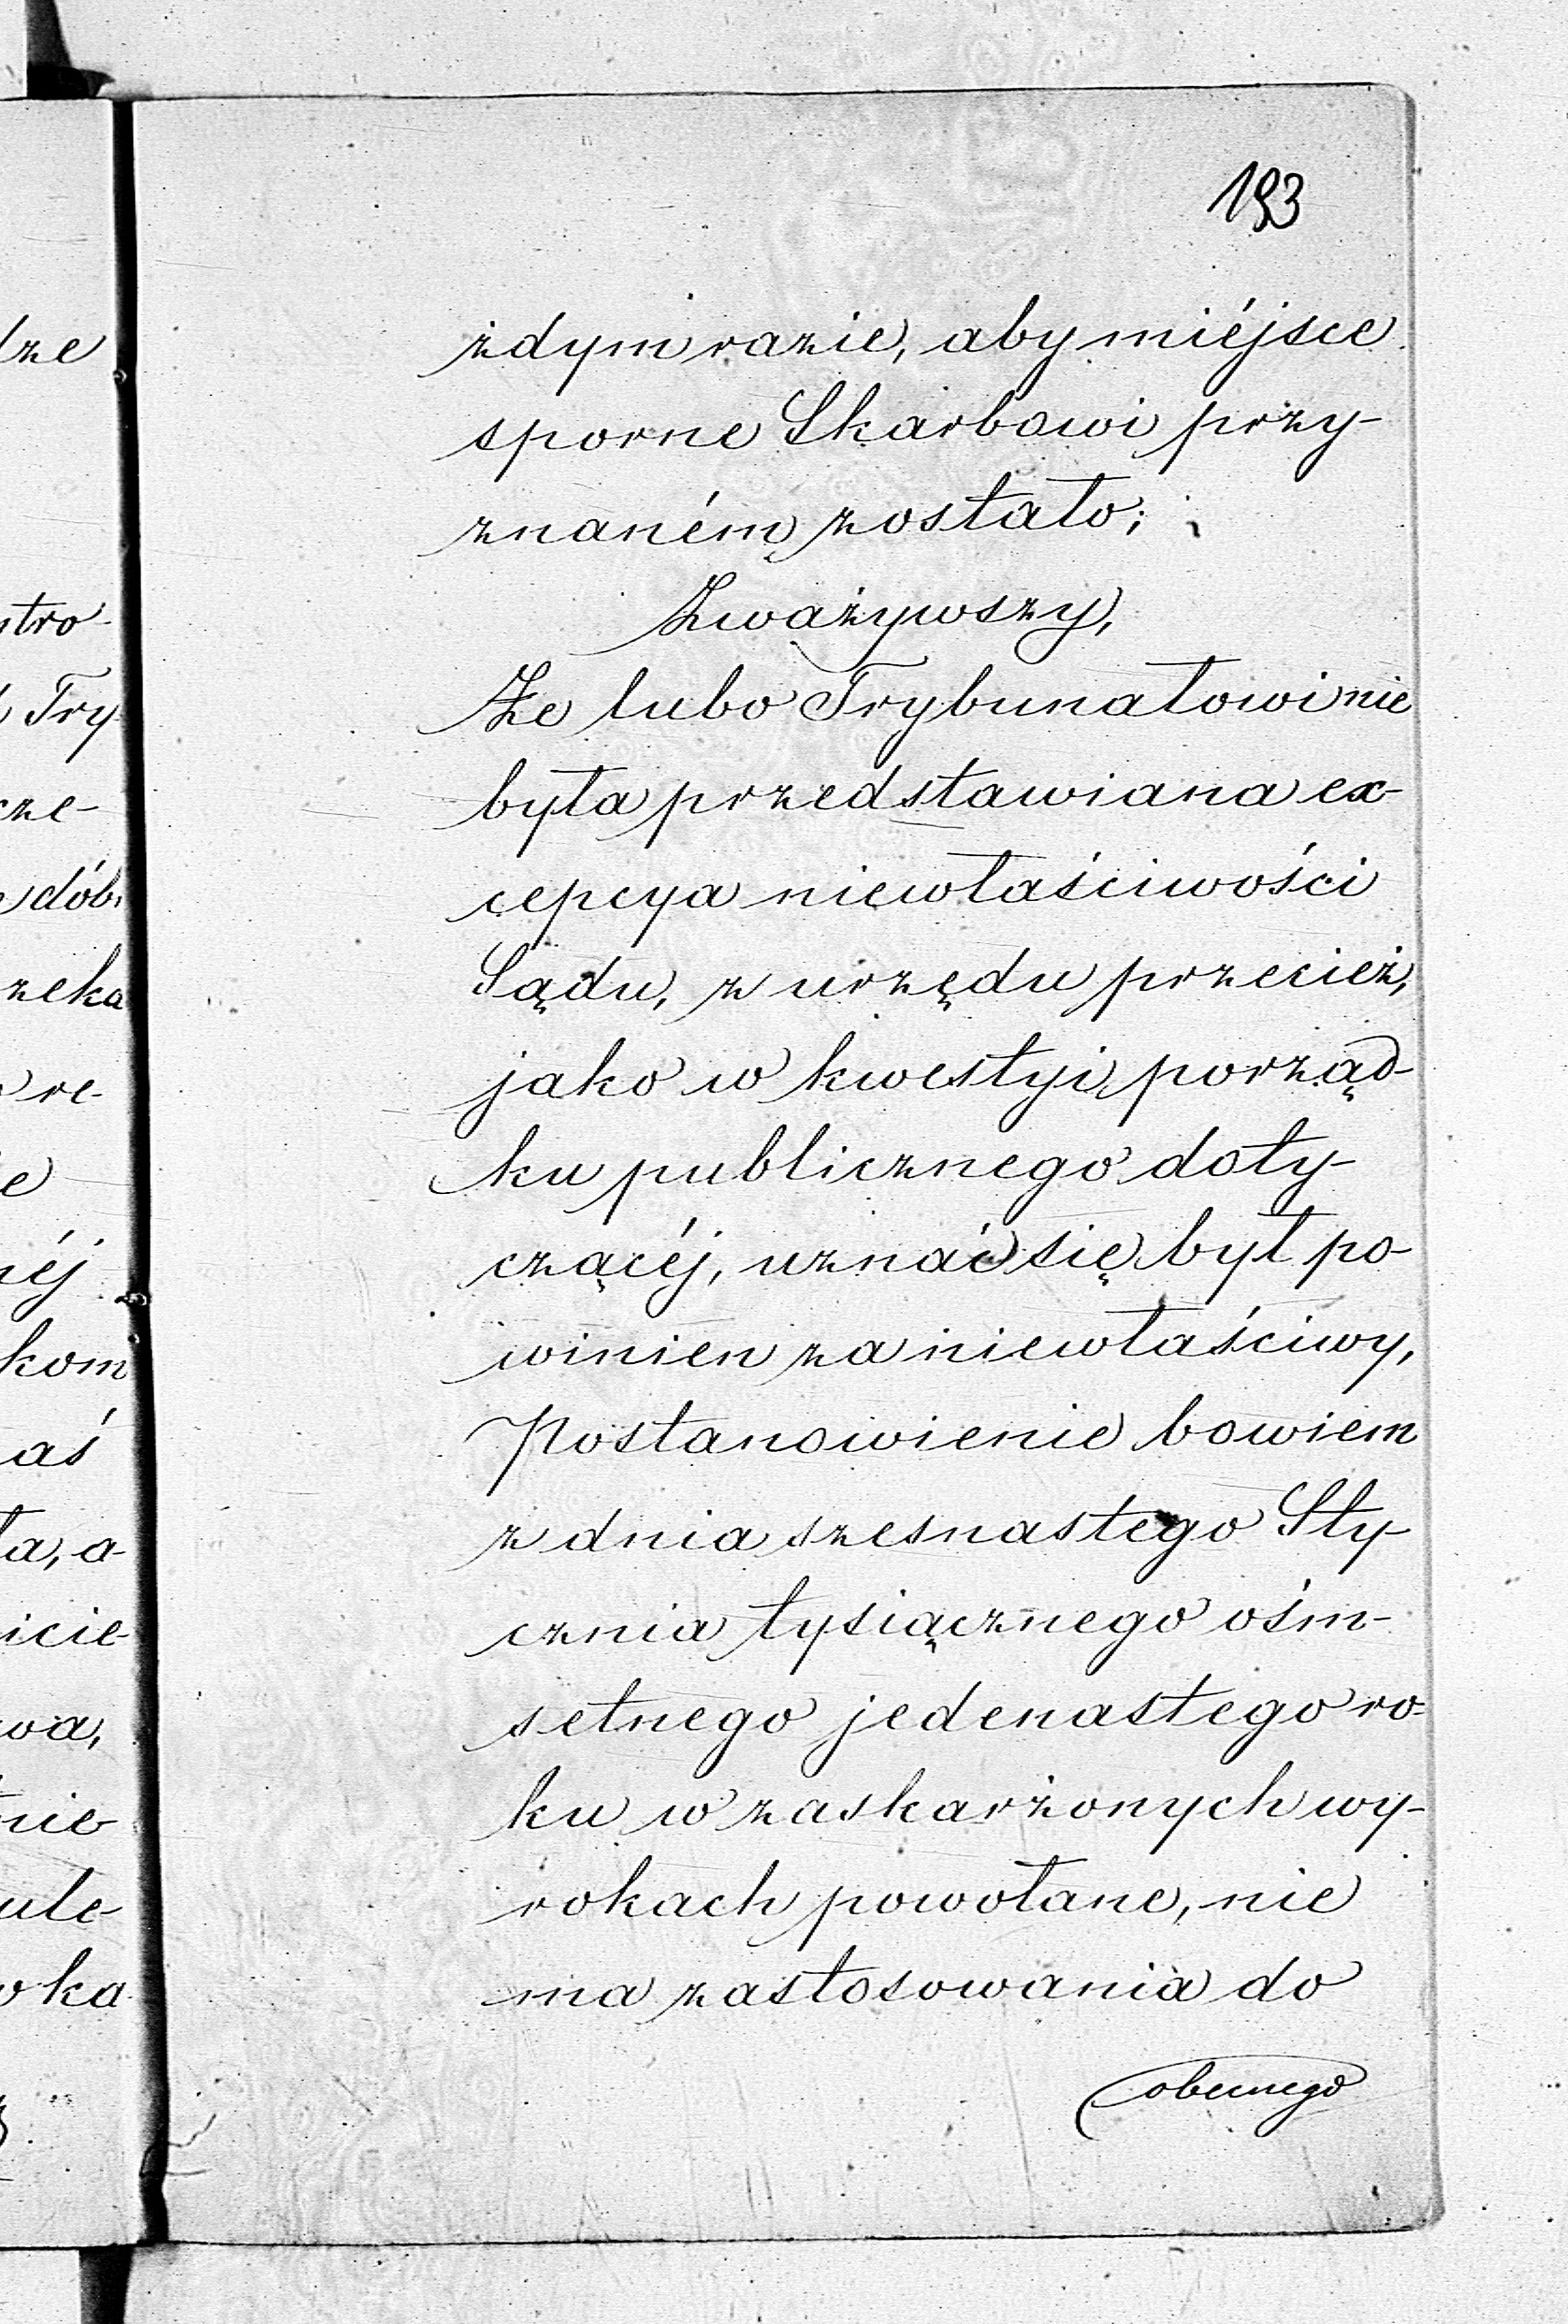 193
żdym razie, aby miéjsce
sporne Skarbowi przy-
znaném zostało;
Zważywszy,
Że lubo Trybunałowi nie
była przedstawiana ex-
cepcya niewłaściwości
Sądu, z urzędu przecież,
jako w kwestyi porząd-
ku publicznego doty-
czącéj, uznać się był po-
winien za niewłaściwy,
Postanowienie bowiem
z dnia szesnastego Sty-
cznia tysiącznego ośm-
setnego jedenastego ro-
ku w zaskarżonych wy-
rokach powołane, nie
ma zastosowania do
obecnego